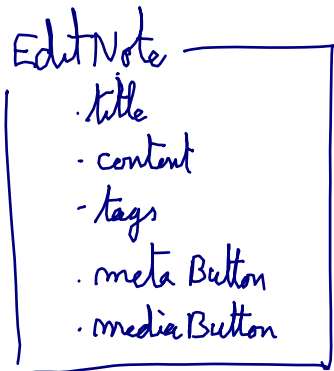 EditNote
. title
- content
- tags
. meta Button
. mediaButton